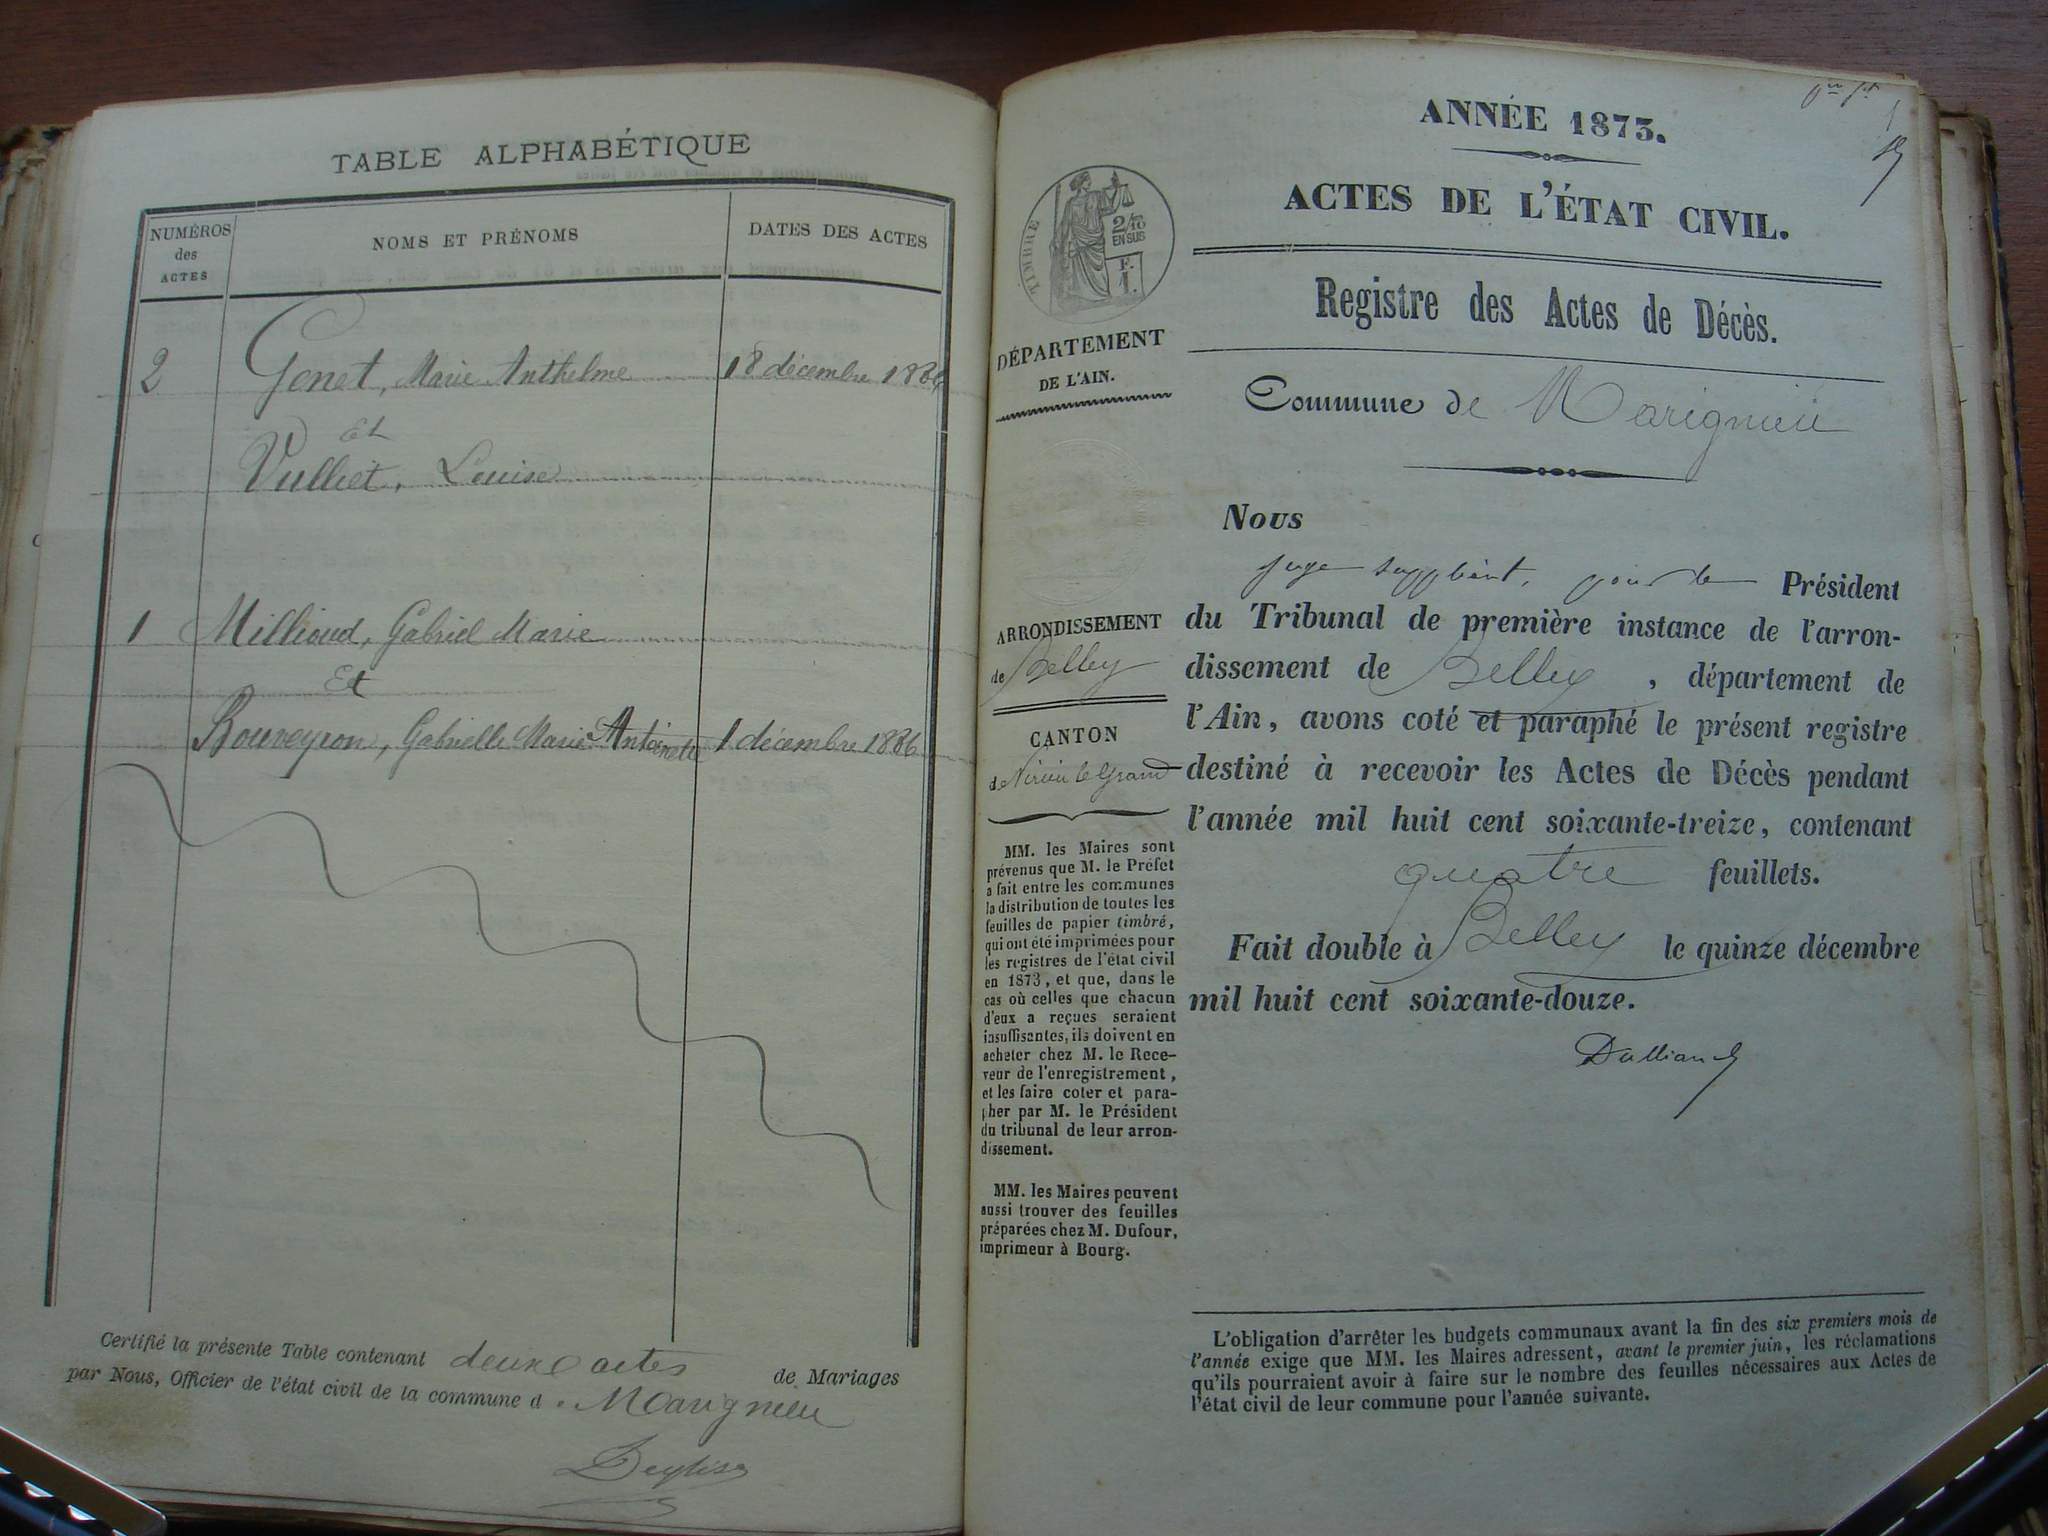 TABLE ALPHABÉTIQUE
NUMÉROS
des
ACTES
NOMS ET PRÉNOMS
DATES DES ACTES
2 Genet, Marie Anthelme 18 décembre 1886
Et
Vulliet, Louise
1 Millioud, Gabriel Marie
Et
Bouveyron, Gabrielle Marie Antoinette 1 décembre 1886
Certifié la présente Table contenant deux actes de Mariages
par Nous, Officier de l'état civil de la commune d Marignieu
ANNÉE 1873.
ACTES DE L'ÉTAT CIVIL.
Registre des Actes de Décès.
Commune de Marignieu
TIMBRE
2/10
EN SUS
F.
1.
DÉPARTEMENT
DE L'AIN.
ARRONDISSEMENT
de Belley
CANTON
de Virieu le Grand
MM. les Maires sont
prévenus que M. le Préfet
a fait entre les communes
la distribution de toutes les
feuilles de papier timbré,
qui ont été imprimées pour
les registres de l'état civil
en 1873, et que, dans le
cas où celles que chacun
d'eux a reçues seraient
insuffisantes, ils doivent en
acheter chez M. le Rece-
veur de l'enregistrement,
et les faire coter et para-
pher par M. le Président
du tribunal de leur arron-
dissement.
MM. les Maires peuvent
aussi trouver des feuilles
préparées chez M. Dufour,
imprimeur à Bourg.
Nous
juge suppléant, pour le Président
du Tribunal de première instance de l'arron-
dissement de Belley, département de
l'Ain, avons coté et paraphé le présent registre
destiné à recevoir les Actes de Décès pendant
l'année mil huit cent soixante-treize, contenant
quatre feuillets.
Fait double à Belley le quinze décembre
mil huit cent soixante-douze.
L'obligation d'arrêter les budgets communaux avant la fin des six premiers mois de
l'année exige que MM. les Maires adressent, avant le premier juin, les réclamations
qu'ils pourraient avoir à faire sur le nombre des feuilles nécessaires aux Actes de
l'état civil de leur commune pour l'année suivante.